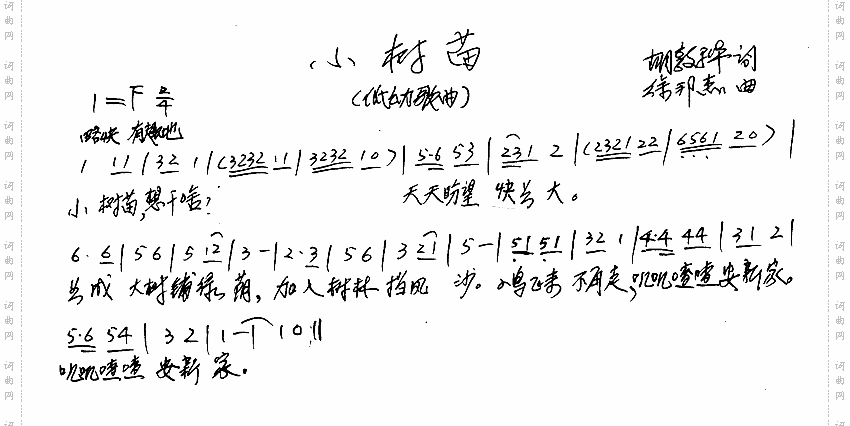 小树苗
(低幼歌曲)
胡敦骅 词
徐邦杰 曲
1=F 2/4
略快 有趣地
1 11 | 32 1 | (3232 11 | 3232 10) | 5·6 53 | 231 2 | (2321 22 | 6561 20) |
小树苗,想干啥? 天天盼望 快长大。
6·6 | 56 | 5 12 | 3 - | 2·3 | 56 | 3 21 | 5 - | 51 51 | 32 1 | 4·4 44 | 31 2 |
长成 大树铺绿荫, 加入树林挡风沙。小鸟飞来不再走,叽叽喳喳安新家。
5·6 54 | 3 2 | 1 - | 1 0 ||
叽叽喳喳 安新家。
词曲网